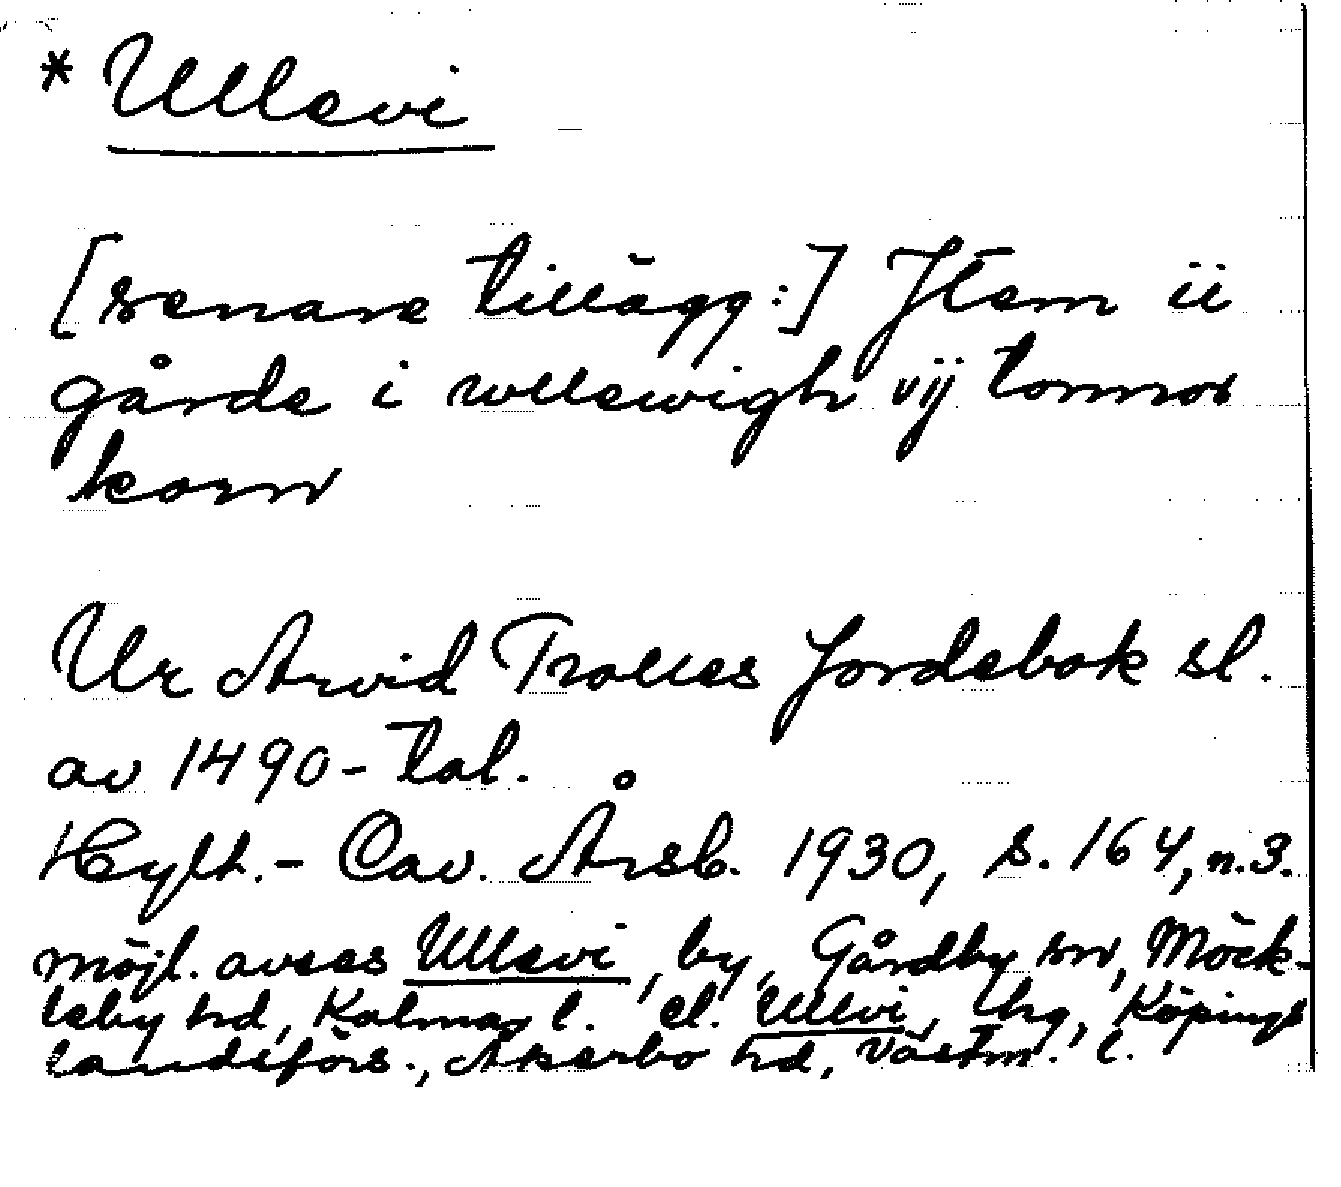 * Ullevi
[senare tillägg:] Item ii
gårde i wllewigh vij tonnor
korn
Ur Arvid Trolles Jordebok sl.
av 1490-tal.
Hylt.- Cav. Årsb. 1930, s. 164, n.3.
möjl. avses Ullevi, by, Gårdby sn, Möck-
leby hd, Kalmar l. el. Ullvi, hg, Köpings
landsförs., Åkerbo hd, Västm. l.